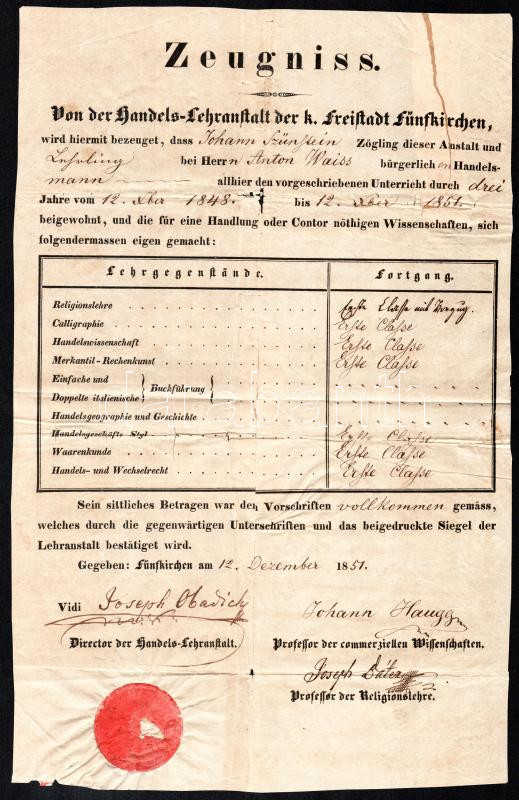 Zeugniss.
Von der Handels-Lehranstalt der k. Freistadt Fünfkirchen,
wird hiermit bezeuget, dass Johann Szünstein Zögling dieser Anstalt und
Lehrling bei Herrn Anton Waiss bürgerlichen Handels-
mann allhier den vorgeschriebenen Unterricht durch drei
Jahre vom 12. Xber 1848. bis 12. Xber 1851.
beigewohnt, und die für eine Handlung oder Contor nöthigen Wissenschaften, sich
folgendermassen eigen gemacht:
Lehrgegenstände. Fortgang.
Religionslehre Erste Classe mit Vorzug.
Calligraphie Erste Classe
Handelswissenschaft Erste Classe
Merkantil-Rechenkunst Erste Classe
Einfache und
Buchführung
Doppelte italienische
Handelsgeographie und Geschichte
Handelsgeschäfts Styl Erste Classe
Waarenkunde Erste Classe
Handels- und Wechselrecht Erste Classe
Sein sittliches Betragen war den Vorschriften vollkommen gemäss,
welches durch die gegenwärtigen Unterschriften und das beigedruckte Siegel der
Lehranstalt bestätiget wird.
Gegeben: Fünfkirchen am 12. Dezember 1851.
Vidi Joseph Obadich
Johann Haugg
Director der Handels-Lehranstalt.
Professor der commerziellen Wissenschaften.
Joseph
Professor der Religionslehre.